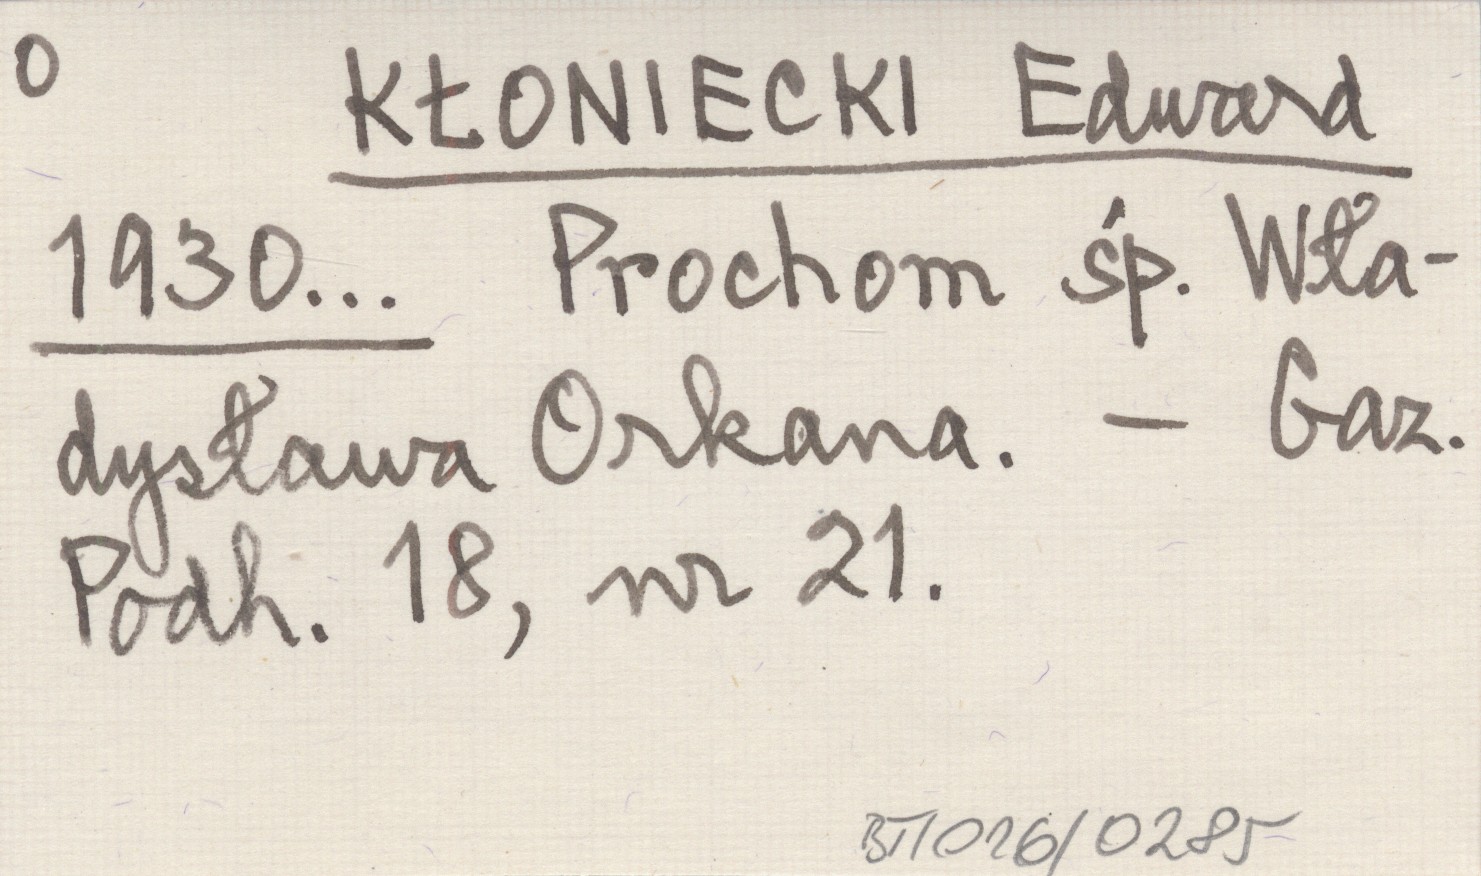 O
KŁONIECKI Edward
1930... Prochom śp. Wła-
dysława Orkana. — Gaz.
Podh. 18, nr 21.
BT/026/0285